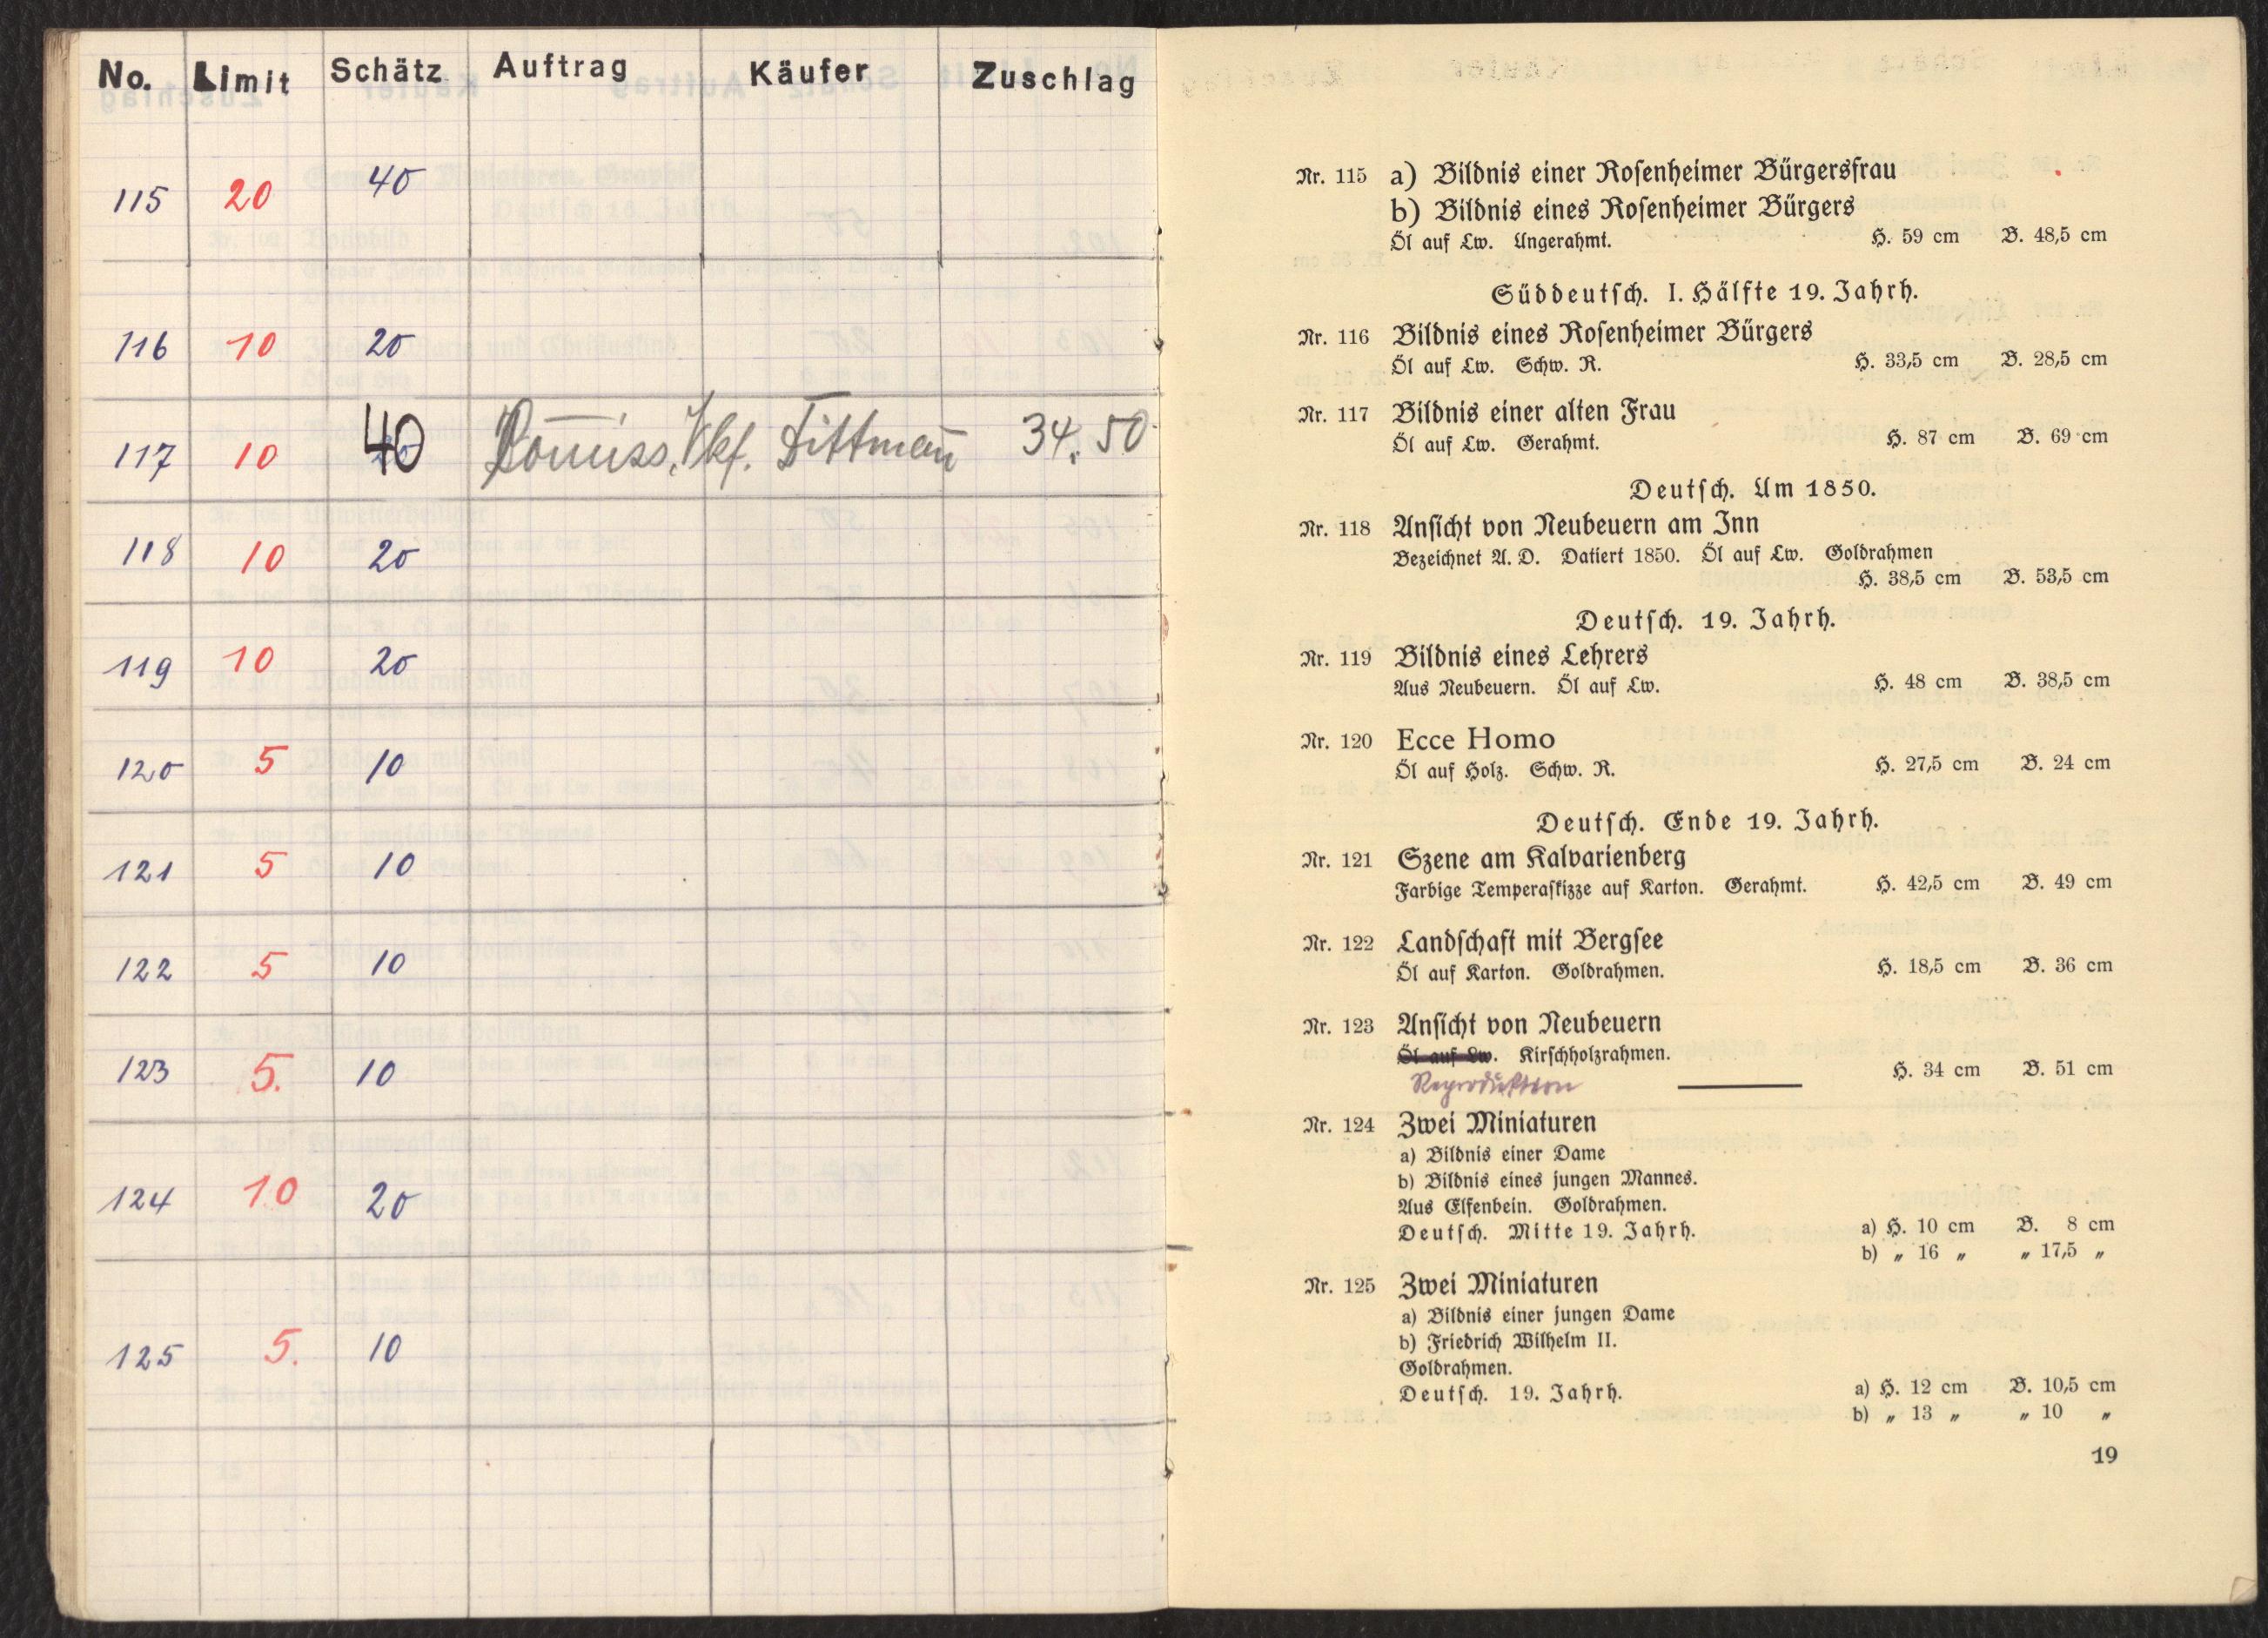 No. Limit Schätz Auftrag Käufer Zuschlag
115 20 40
116 10 20
117 10 40 Kom̄iss. Vkf. Dittman̄ 34.50
118 10 20
119 10 20
120 5 10
121 5 10
122 5 10
123 5. 10
124 10 20
125 5. 10
Nr. 115 a) Bildnis einer Roſenheimer Bürgersfrau
b) Bildnis eines Roſenheimer Bürgers
Öl auf Lw. Ungerahmt. H. 59 cm B. 48,5 cm
Süddeutſch. I. Hälfte 19. Jahrh.
Nr. 116 Bildnis eines Roſenheimer Bürgers
Öl auf Lw. Schw. R. H. 33,5 cm B. 28,5 cm
Nr. 117 Bildnis einer alten Frau
Öl auf Lw. Gerahmt. H. 87 cm B. 69 cm
Deutſch. Um 1850.
Nr. 118 Anſicht von Neubeuern am Inn
Bezeichnet A. D. Datiert 1850. Öl auf Lw. Goldrahmen
H. 38,5 cm B. 53,5 cm
Deutſch. 19. Jahrh.
Nr. 119 Bildnis eines Lehrers
Aus Neubeuern. Öl auf Lw. H. 48 cm B. 38,5 cm
Nr. 120 Ecce Homo
Öl auf Holz. Schw. R. H. 27,5 cm B. 24 cm
Deutſch. Ende 19. Jahrh.
Nr. 121 Szene am Kalvarienberg
Farbige Temperaſkizze auf Karton. Gerahmt. H. 42,5 cm B. 49 cm
Nr. 122 Landſchaft mit Bergſee
Öl auf Karton. Goldrahmen. H. 18,5 cm B. 36 cm
Nr. 123 Anſicht von Neubeuern
Öl auf Lw. Kirſchholzrahmen.
H. 34 cm B. 51 cm
Reproduktion
Nr. 124 Zwei Miniaturen
a) Bildnis einer Dame
b) Bildnis eines jungen Mannes.
Aus Elfenbein. Goldrahmen.
Deutſch. Mitte 19. Jahrh. a) H. 10 cm B. 8 cm
b) „ 16 „ „ 17,5 „
Nr. 125 Zwei Miniaturen
a) Bildnis einer jungen Dame
b) Friedrich Wilhelm II.
Goldrahmen.
Deutſch. 19. Jahrh. a) H. 12 cm B. 10,5 cm
b) „ 13 „ „ 10 „
19